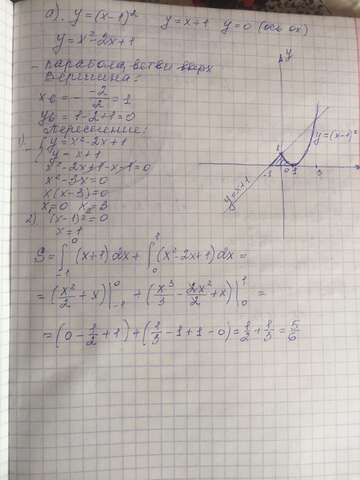 c). y=(x-1)² y=x+1 y=0 (ось ox)
y=x²-2x+1
- парабола, ветви вверх
Вершина:
xв = - -2/2 = 1
yв = 1-2+1=0
Пересечение:
1) { y=x²-2x+1
- { y=x+1
x²-2x+1-x-1=0
x²-3x=0
x(x-3)=0
x=0 x=3
2) (x-1)²=0
x=1
S = ∫₋₁⁰ (x+1)dx + ∫₀¹ (x²-2x+1)dx =
= (x²/2 + x)|₋₁⁰ + (x³/3 - 2x²/2 + x)|₀¹ =
= (0 - 1/2 + 1) + (1/3 - 1 + 1 - 0) = 1/2 + 1/3 = 5/6
y
1
y=(x-1)²
-1 0 1 3
y=x+1